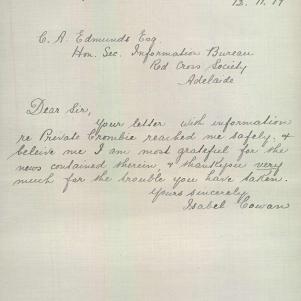 12. 11. 17
C. A. Edmunds Esq
Hon. Sec. Information Bureau
Red Cross Society
Adelaide
Dear Sir,
Your letter with information
re Private Crombie reached me safely, &
beleive me I am most grateful for the
news contained therein, & thank you very
much for the trouble you have taken.
Yours sincerely
Isabel Cowan